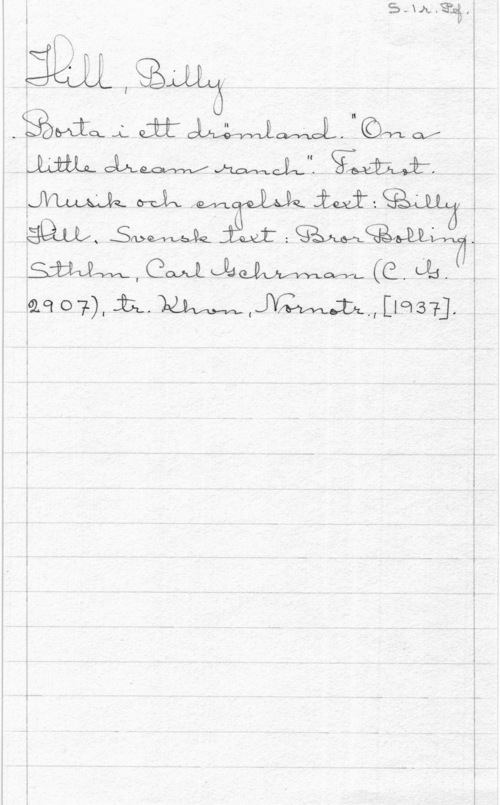 S. 1 r. Pf.
Hill, Billy
Borta i ett drömland. "On a
little dream ranch". Foxtrot.
Musik och engelsk text: Billy
Hill. Svensk text: Bror Bolling.
Sthlm, Carl Gehrman (C. G.
2907), tr. Khvn, Nornotr., [1937].